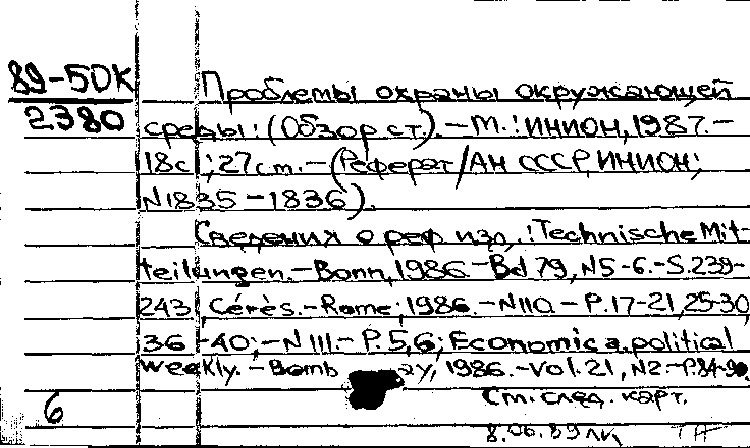 89-50К
2380
Проблемы охраны окружающей
среды: (Обзор ст.). — М.: ИНИОН, 1987. —
18с.; 27см. — (Реферат/АН СССР, ИНИОН;
N1835 – 1836).
Сведения о реф. изд.: Technische Mit-
teilungen. — Bonn, 1986. — Bd 79, N5-6. — S.239-
243; Cérès. — Rome; 1986. — N110. — P.17-21, 25-30,
36-40; — N111. — P.5,6; Economic a. political
weekly. — Bomb ay, 1986. — Vol.21, N2. — P.84-90.
6 См. след. карт.
8.06.89